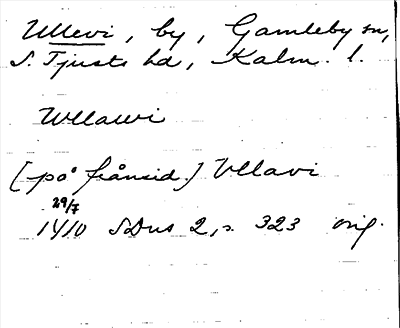 Ullevi, by, Gamleby sn,
S. Tjusts hd, Kalm. l.
Wllawi
[på frånsid.] Vllavi
29/7
1410 SDns 2, s. 323 orig.